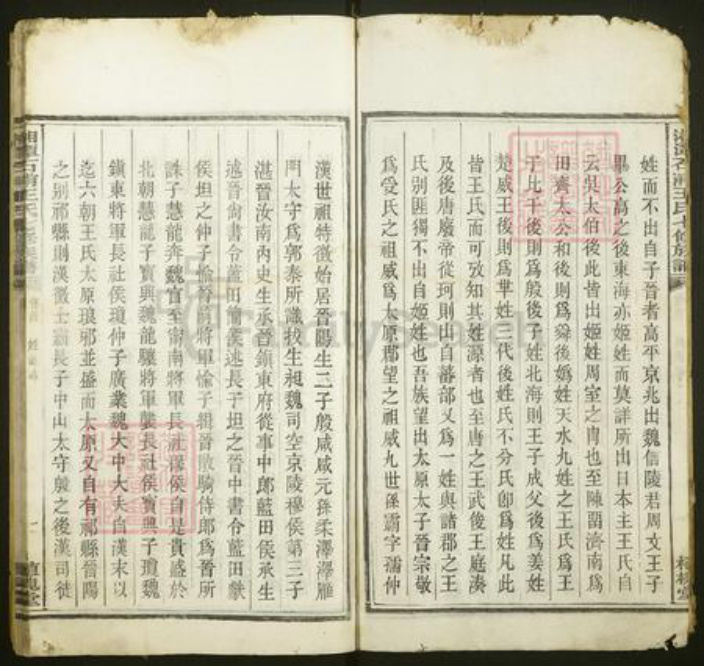 姓而不出自子晉者高平京兆出魏信陵君周文王子
畢公高之後東海亦姬姓而莫詳所出日本主王氏自
云吳太伯後此皆出姬姓周室之冑也至陳留濟南爲
田齊太公和後則爲舜後嬀姓天水九姓之王氏爲王
子比干後則爲殷後子姓北海則王子成父後爲姜姓
楚威王後則爲芈姓三代後姓氏不分氏卽爲姓凡此
皆王氏而可攷知其姓源者也至唐之王武俊王庭湊
及後唐廢帝從珂則出自蕃部又爲一姓與諸郡之王
氏別匪獨不出自姬姓也吾族望出太原太子晉宗敬
爲受氏之祖威爲太原郡望之祖威九世孫霸字孺仲
漢世祖特徵始居晉陽生二子殷咸咸元孫柔澤澤雁
門太守爲郭泰所識拔生昶魏司空京陵穆侯第三子
湛晉汝南內史生承晉鎮東府從事中郎藍田侯承生
述晉尙書令藍田簡侯述長子坦之晉中書令藍田獻
侯坦之仲子愉晉前將軍愉子緝晉散騎侍郎爲晉所
誅子慧龍奔魏官至甯南將軍長社穆侯自是貴盛於
北朝慧龍子寶興魏龍驤將軍襲長社侯寶興子瓊魏
鎮東將軍長社侯瓊仲子廣業魏大中大夫自漢末以
迄六朝王氏太原琅邪並盛而太原又自有祁縣晉陽
之別祁縣則漢徵士霸長子中山太守殷之後漢司徒